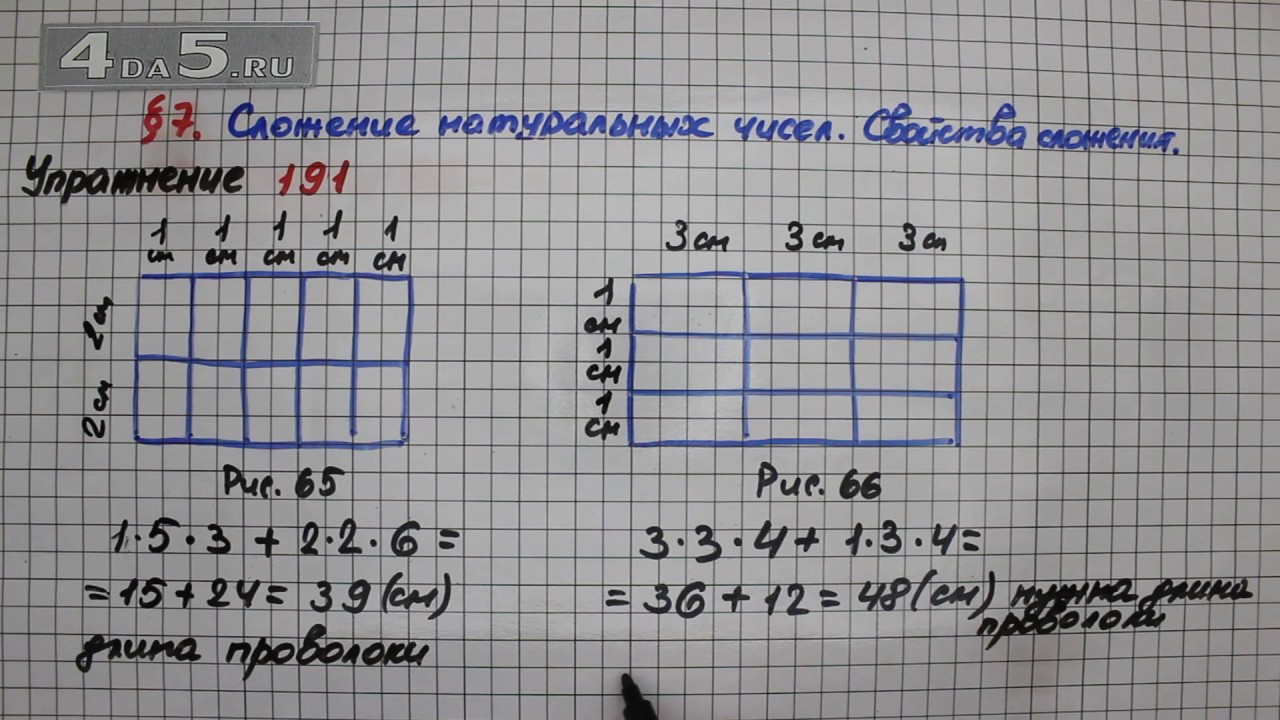 4DA5.RU
§7. Сложение натуральных чисел. Свойства сложения.
Упражнение 191
1 см 1 см 1 см 1 см 1 см
2 см
2 см
Рис. 65
1·5·3 + 2·2·6 =
= 15 + 24 = 39 (см)
длина проволоки
3 см 3 см 3 см
1 см
1 см
1 см
Рис. 66
3·3·4 + 1·3·4 =
= 36 + 12 = 48 (см) нужна длина
проволоки